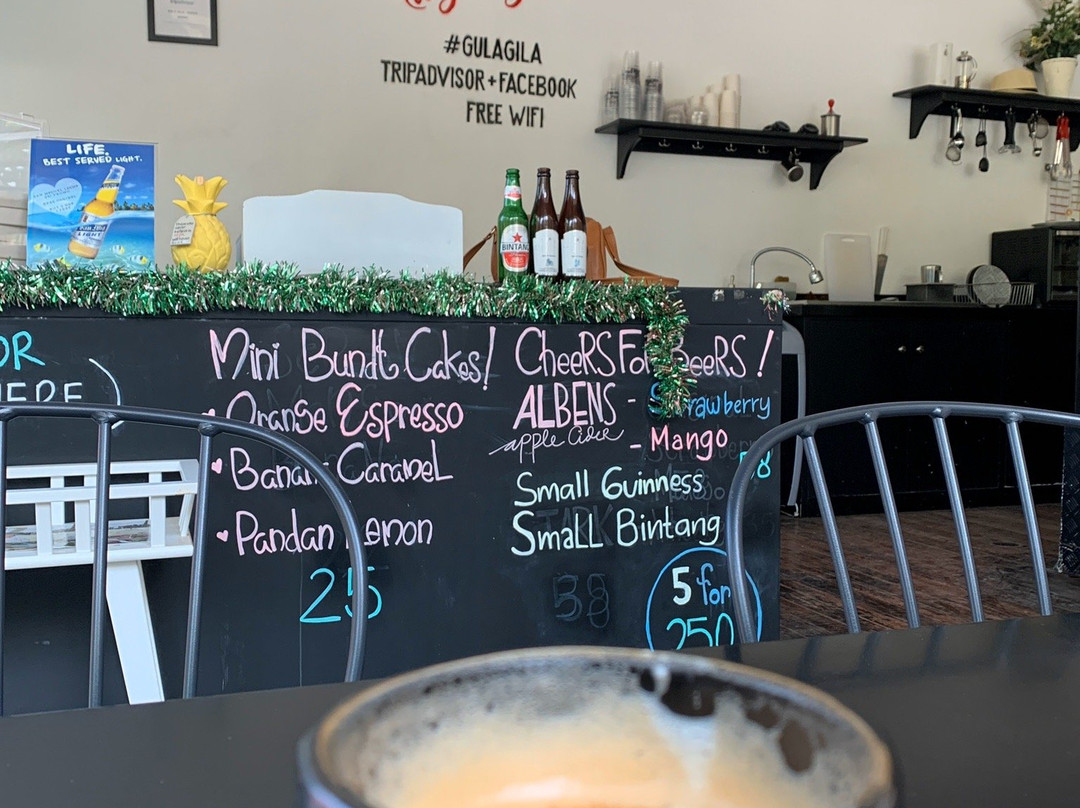 #GULAGILA
TRIPADVISOR + FACEBOOK
FREE WIFI
LIFE.
BEST SERVED LIGHT.
LIGHT
BINTANG
OR
HERE
Mini Bundt Cakes!
Orange Espresso
Banana Caramel
Pandan Lemon
25
CheeRS For BeeRS!
ALBENS - Strawberry
apple Cider - Mango
58
Small Guinness
Small Bintang
5 for
250